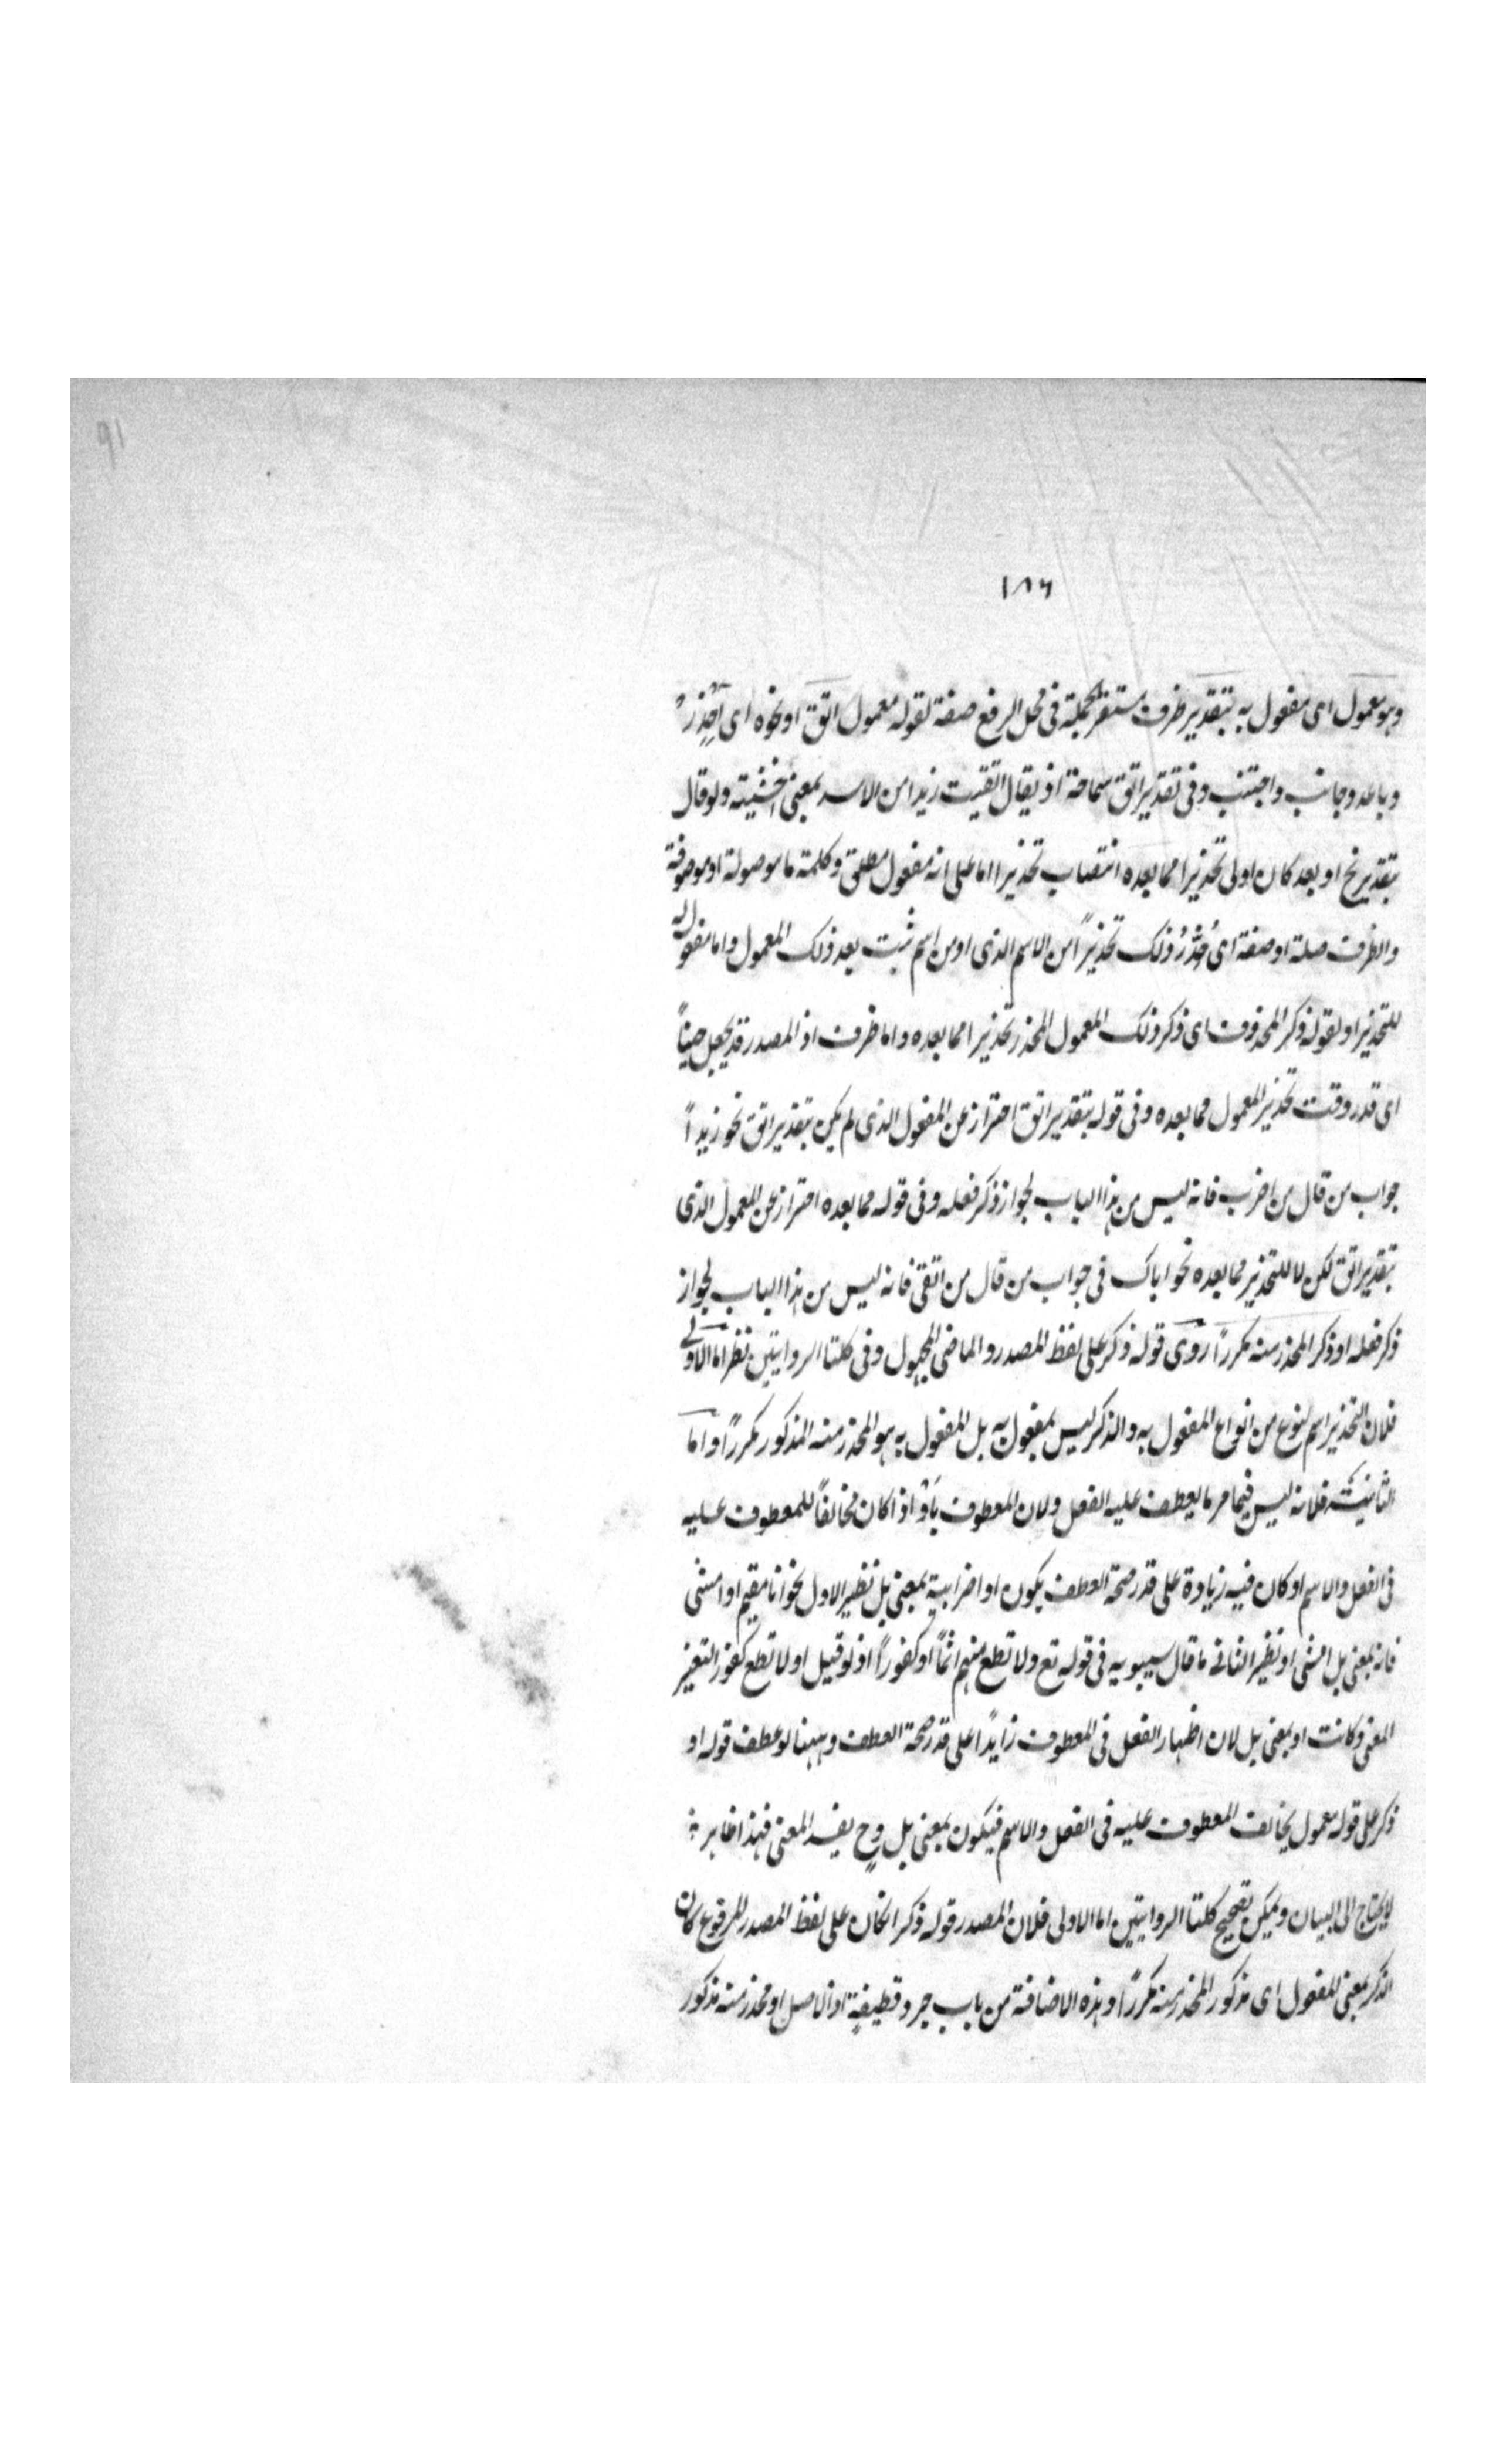 91
١٨٦
وهو معمول اى مفعول به بتقدير ظرف مستقر لجملة فى محل الرفع صفة لقوله معمول اتق او نحوه اى احذر
وباعد وجانب واجتنب وفى تقدير اتق سماحة اذ يقال اتقيت زيدا من الاسد بمعنى خشيته ولو قال
بتقدير نح او بعد كان اولى تحذيرا مما بعده انتصاب تحذيرا اما على انه مفعول مطلق وكلمة ما موصولة او موصوفة
والظرف صلة او صفة اى حُذِّرَ ذلك تحذيرًا من الاسم الذى او من اسم ثبت بعد ذلك المعمول واما مفعول له
للتحذير او لقوله ذكر المحذوف اى ذكر ذلك المعمول المحذر تحذيرا مما بعده واما ظرف اذ المصدر قد يجعل حينًا
اى قدر وقت تحذير المعمول مما بعده وفى قوله بتقدير اتق احتراز عن المفعول الذى لم يكن بتقدير اتق نحو زيدًا
جواب من قال من اضرب فانه ليس من هذا الباب لجواز ذكر فعله وفى قوله مما بعده احتراز عن المعمول الذى
بتقدير اتق لكن لا للتحذير مما بعده نحو اياك فى جواب من قال من اتقى فانه ليس من هذا الباب لجواز
ذكر فعله او ذكر المحذر منه مكررًا روى قوله ذكر على لفظ المصدر والماضى المجهول وفى كلتا الروايتين نظر اما الاولى
فلان التحذير اسم لنوع من انواع المفعول به والذكر ليس بمفعول به بل المفعول به هو المحذر منه المذكور مكررًا واما
الثانية فلانه ليس فيما مر ما يعطف عليه الفعل ولان المعطوف بأَوْ اذا كان مخالفًا للمعطوف عليه
فى الفعل والاسم او كان فيه زيادة على قدر صحة العطف يكون او اضرابية بمعنى بل نظير الاول نحو انا مقيم او امشى
فانه بمعنى بل امشى او نظير الثانى ما قال سيبويه فى قوله تع ولا تطع منهم اثمًا او كفورًا اذ لو قيل او لا تطع كفورا لتغير
المعنى وكانت او بمعنى بل لان اظهار الفعل فى المعطوف زايدًا على قدر صحة العطف وههنا لو عطف قوله او
ذكر على قوله معمول يخالف المعطوف عليه فى الفعل والاسم فيكون بمعنى بل وح يفسد المعنى فهذا ظاهر
لا يحتاج الى البيان ويمكن تصحيح كلتا الروايتين اما الاولى فلان المصدر قوله ذكر ان كان على لفظ المصدر المرفوع كان
الذكر بمعنى المفعول اى مذكور المحذر منه مكررًا وهذه الاضافة من باب جرد قطيفة اذ الاصل او محذر منه مذكور